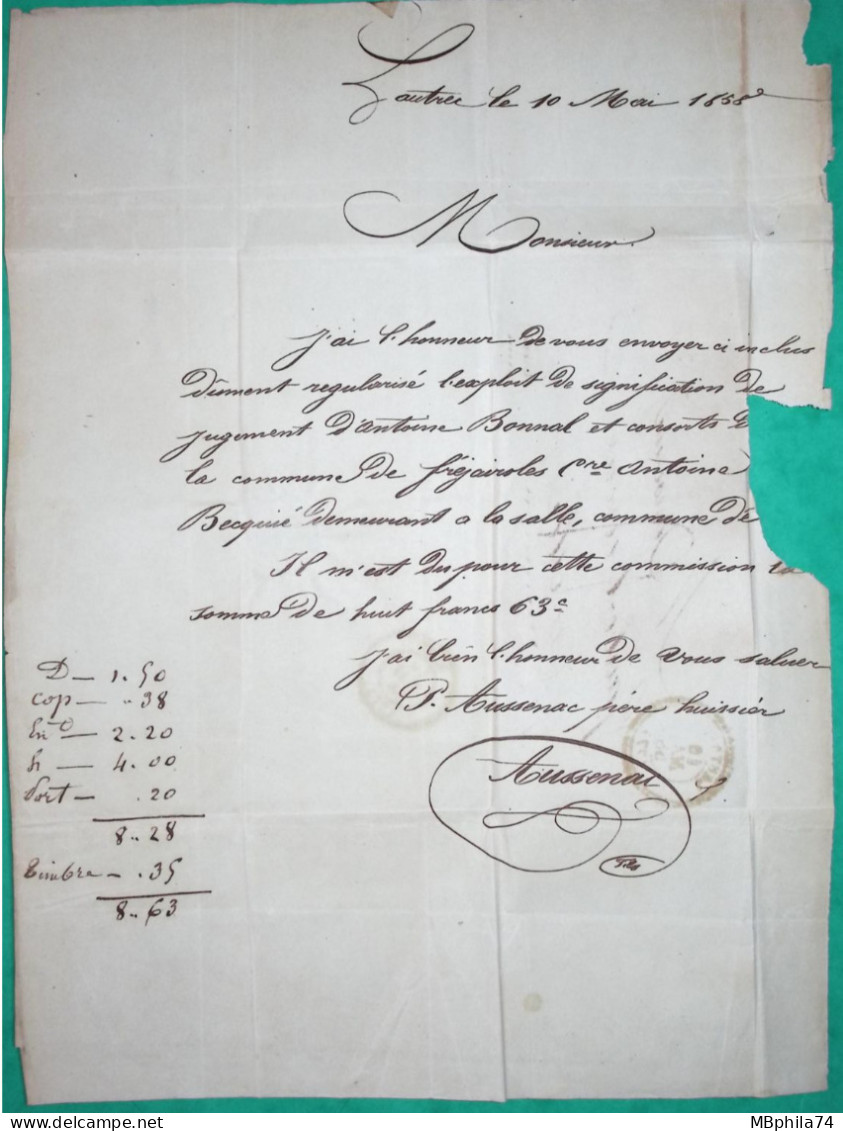 Lautrec le 10 Mai 1858
Monsieur
J'ai l'honneur de vous envoyer ci inclus
dûment regularisé l'exploit de signification de
jugement d'Antoine Bonnal et consorts
la commune de fréjairoles Cre Antoine
Becquié demeurant a la salle, commune de
Il m'est du pour cette commission la
somme de huit francs 63c
J'ai bien l'honneur de vous saluer
P. Aussenac père huissier
Aussenac
D — 1.50
cop — .38
2.20
4.00
Port — .20
8.. 28
Timbre — .35
8.. 63
delcampe.net
MBphila74